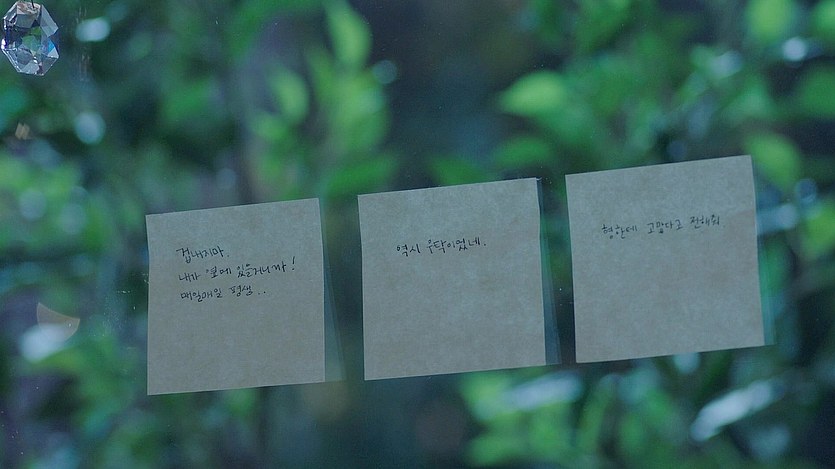 겁내지마,
내가 옆에 있을거니까!
매일매일 평생..
역시 우탁이었네.
형한테 고맙다고 전해줘